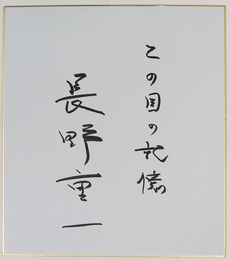 この国の記憶
長野重一